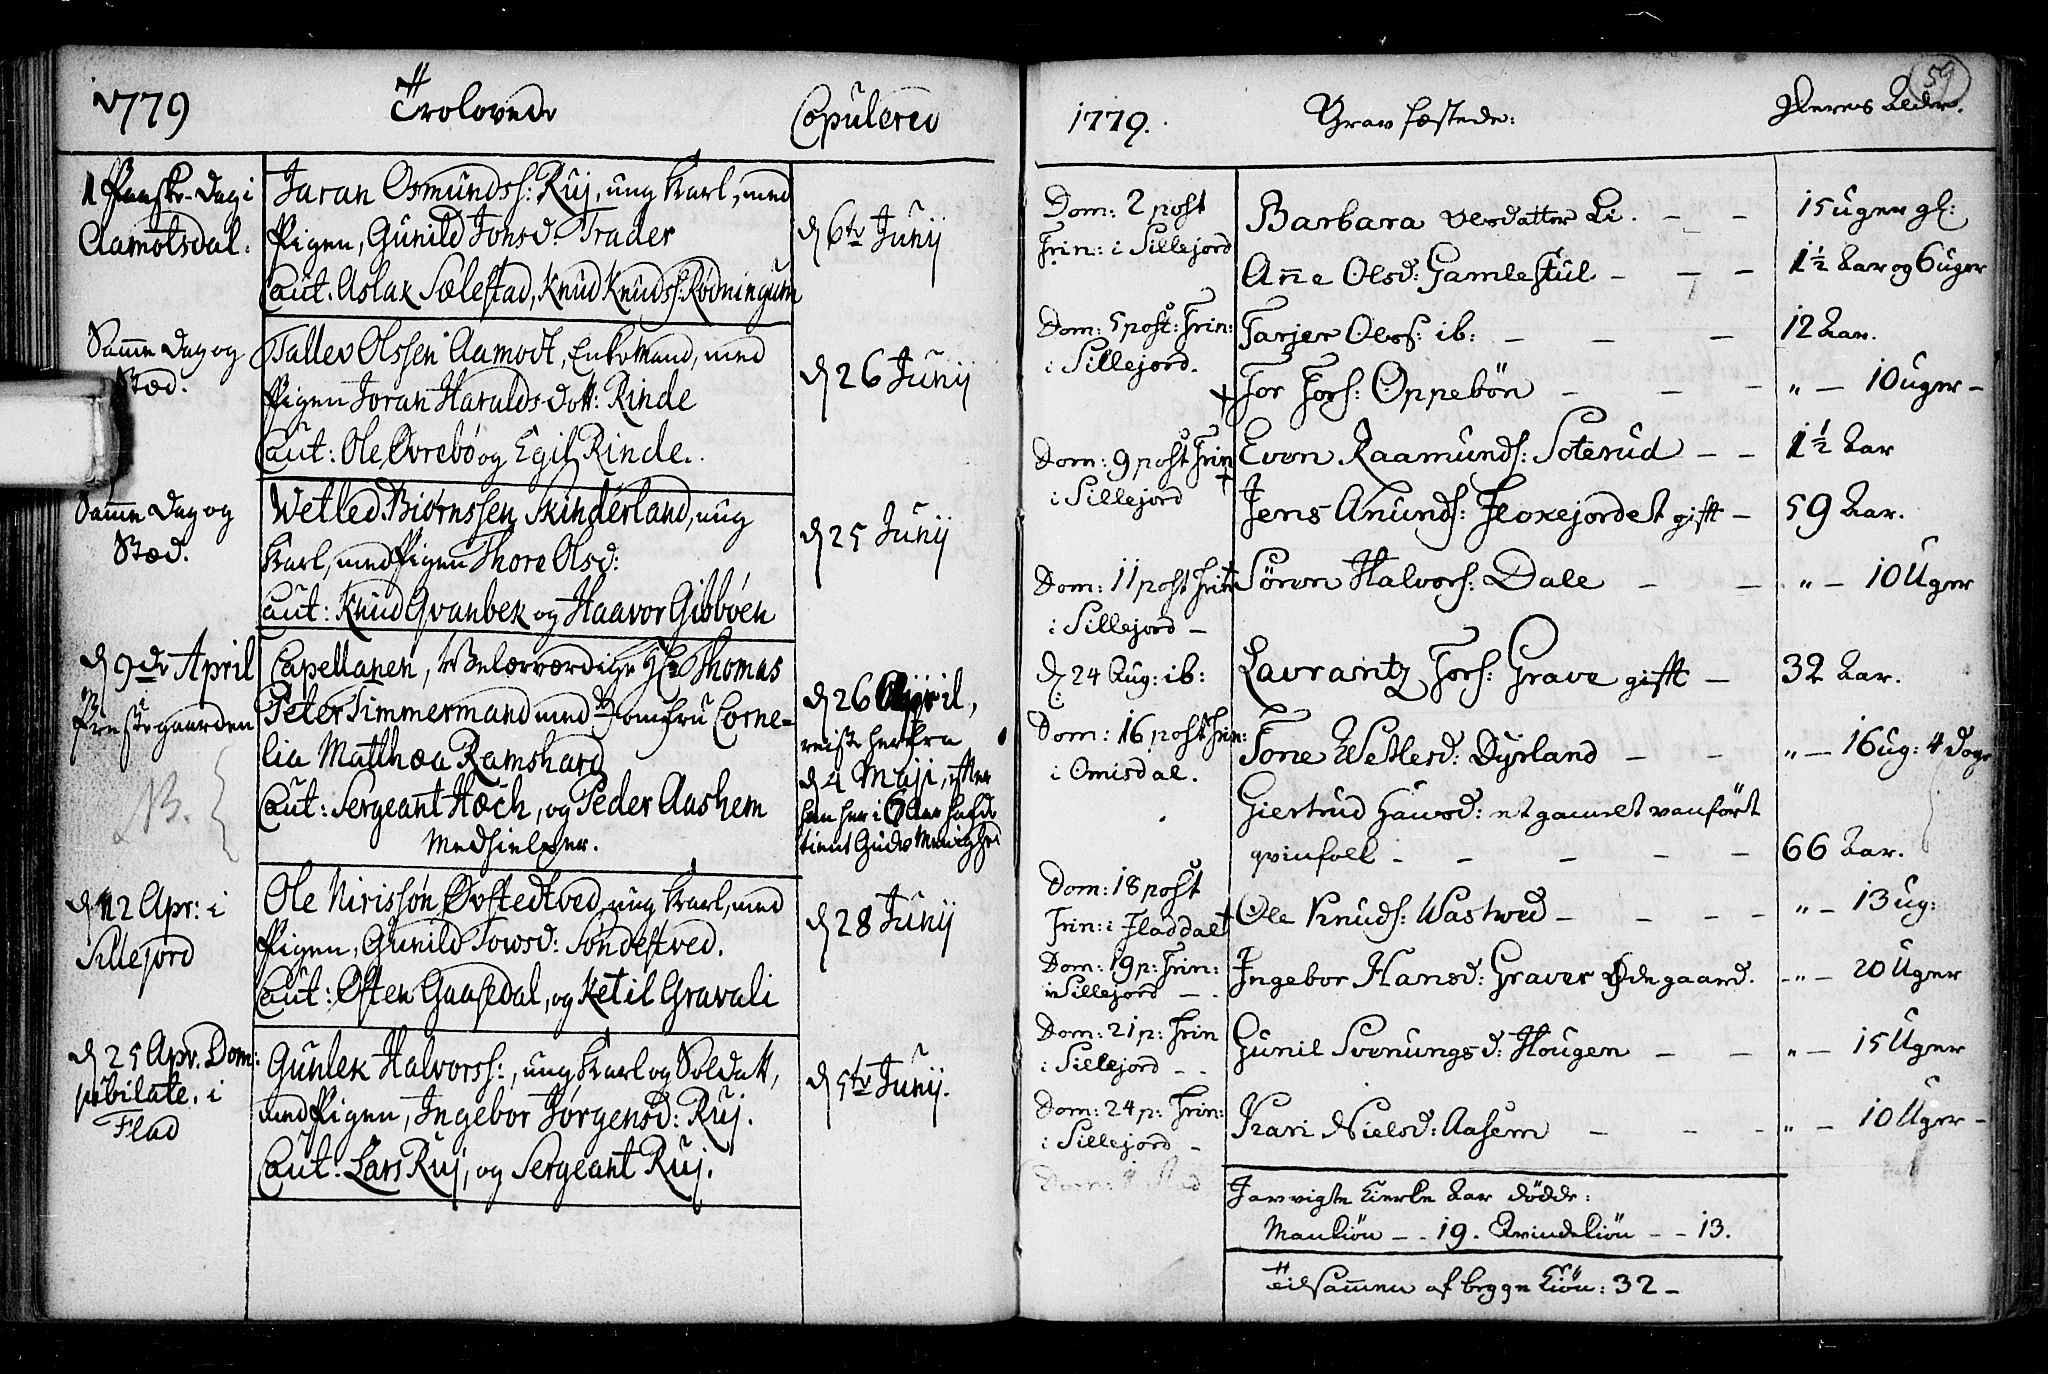 1779
Trolovede
Copulered
1 Paaske-Dag i
Aamotsdal.
Jaran Osmundss: Ruj, ung Karl, med
Pigen, Gunild Jonsd: Trader
Caut. Aslak Sælestad, Knud Knudss: Rødningum
d 6te Junij
Samme Dag og
Stæd.
Tallev Olssen Aamodt, Enkemand, med
Pigen Joran Haralds dott: Rinde
Caut: Ole Øvrebø og Egil Rinde.
d 26 Junij
Samme Dag og
Stæd.
Wetled Biørnssen Skinderland, ung
Karl, med Pigen Thore Olsd:
Caut: Knud Gvanbek og Haavor Gibbøen
d 25 Junij
d 9de April
i
Præstegaarden
NB.
Capellanen, Velærværdige Hr Thomas
Peter Timmermand med Jomfru Corne-
lia Matthæa Ramshard
Caut: Sergeant Høch, og Peder Aashem
Medhielper.
d 26 April,
reiste herfra
d 4 Maji, efter
han her i 6 Aar hafde
tient Guds Menighed
d 12 Apr: i
Sillejord
Ole Nirissøn Øvstedtved, ung Karl, med
Pigen, Gunild Tovsd: Søndestved.
Caut: Østen Gaasedal, og Ketil Gravali
d 28 Junij
d 25 Apr. Dom:
jubilate, i
Flad
Gunlek Halvorss:, ung Karl og Soldatt,
med Pigen, Ingebor Jørgensd: Ruj.
Caut: Lars Ruj, og Sergeant Ruj.
d 5te Junij.
59
1779.
Grav fæstede:
Deres Alder.
Dom: 2 post
Trin: i Sillejord
Barbara Olesdatter Li. - -
15 uger gl:
Anne Olsd: Gamlestul - - -
1½ Aar og 6 uger
Dom: 5 post: Trin:
i Sillejord.
Tarjer Oless: ib: - - -
12 Aar.
+ Tor Tors: Oppebön - - -
" - 10 uger -
Dom: 9 post Trin
i Sillejord
Even Raamunds: Soterud - -
1½ Aar
+ Jens Anunds: Floxejordet gifft -
59 Aar.
Dom: 11 post Trin
i Sillejord -
+ Sören Halvors: Dale - -
" - 10 Uger
d: 24 Aug: ib:
Lavrantz Tors: Grave gifft -
32 Aar.
Dom: 16 post Trin:
i Omisdal.
Tone Wetlesd: Dyrland - - -
" - 16 ug: 4 Doge
Giertrud Hauvsd: et gamelt vanfört
qvinfolk - - - - -
66 Aar.
Dom: 18 post
Trin: i Fladdal
+ Ole Knuds: Wastved - - - -
" - 13 ug:
Dom: 19 p: Trin:
i Sillejord - .
Ingebor Hansd: Graver Ødegaard.
- " - 20 Uger
Dom: 21 p: Trin
i Sillejord - -
Gunil Svenungsd: Hougen - -
" - 15 Uger
Dom: 24 p: Trin:
i Sillejord -
Kari Nielsd: Aasem - - -
" - 10 Uger -
Dom:
I arvigte Kierke Aar dödde:
Mankiön - - 19. Qvindekiön - - 13.
Tilsamen af begge Kiön: 32 -